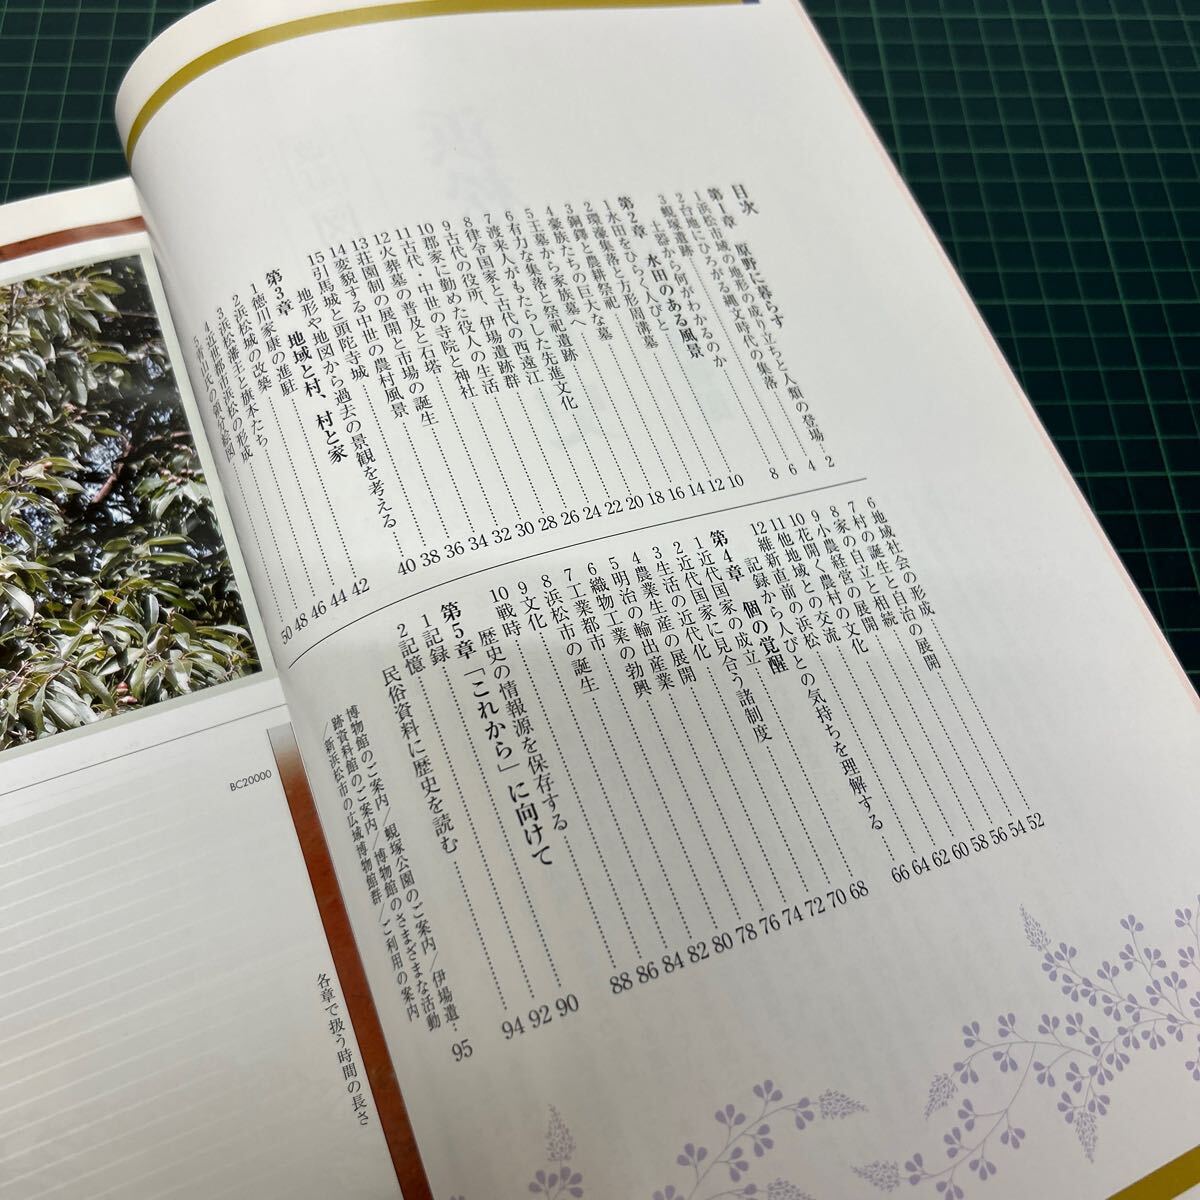 目次
第1章　原野に暮らす
1 浜松市域の地形の成り立ちと人類の登場 2
2 台地にひろがる縄文時代の集落 4
3 蜆塚遺跡 6
土器から何がわかるのか 8
第2章　水田のある風景
1 水田をひらく人びと 10
2 環濠集落と方形周溝墓 12
3 銅鐸と農耕祭祀 14
4 豪族たちの巨大な墓 16
5 王墓から家族墓へ 18
6 有力な集落と祭祀遺跡 20
7 渡来人がもたらした先進文化 22
8 律令国家と古代の西遠江 24
9 古代の役所、伊場遺跡群 26
10 郡家に勤めた役人の生活 28
11 古代・中世の寺院と神社 30
12 火葬墓の普及と石塔 32
13 荘園制の展開と市場の誕生 34
14 変貌する中世の農村風景 36
15 引馬城と頭陀寺城 38
地形や地図から過去の景観を考える 40
第3章　地域と村、村と家
1 徳川家康の進駐 42
2 浜松城の改築 44
3 浜松藩主と旗本たち 46
4 近世都市浜松の形成 48
5 青山氏の領分絵図 50
6 地域社会の形成 52
7 村の誕生と自治の展開 54
8 家の自立と相続 56
9 小農経営の展開 58
10 花開く農村の文化 60
11 他地域との交流 62
12 維新直前の浜松 64
記録から人びとの気持ちを理解する 66
第4章　個の覚醒
1 近代国家の成立 68
2 近代国家に見合う諸制度 70
3 生活の近代化 72
4 農業生産の展開 74
5 明治の輸出産業 76
6 織物工業の勃興 78
7 工業都市 80
8 浜松市の誕生 82
9 文化 84
10 戦時 86
歴史の情報源を保存する 88
第5章　「これから」に向けて
1 記録 90
2 記憶 92
民俗資料に歴史を読む 94
博物館のご案内／蜆塚公園のご案内／伊場遺
跡資料館のご案内／博物館のさまざまな活動
／新浜松市の広域博物館群／ご利用の案内 95
BC20000
各章で扱う時間の長さ